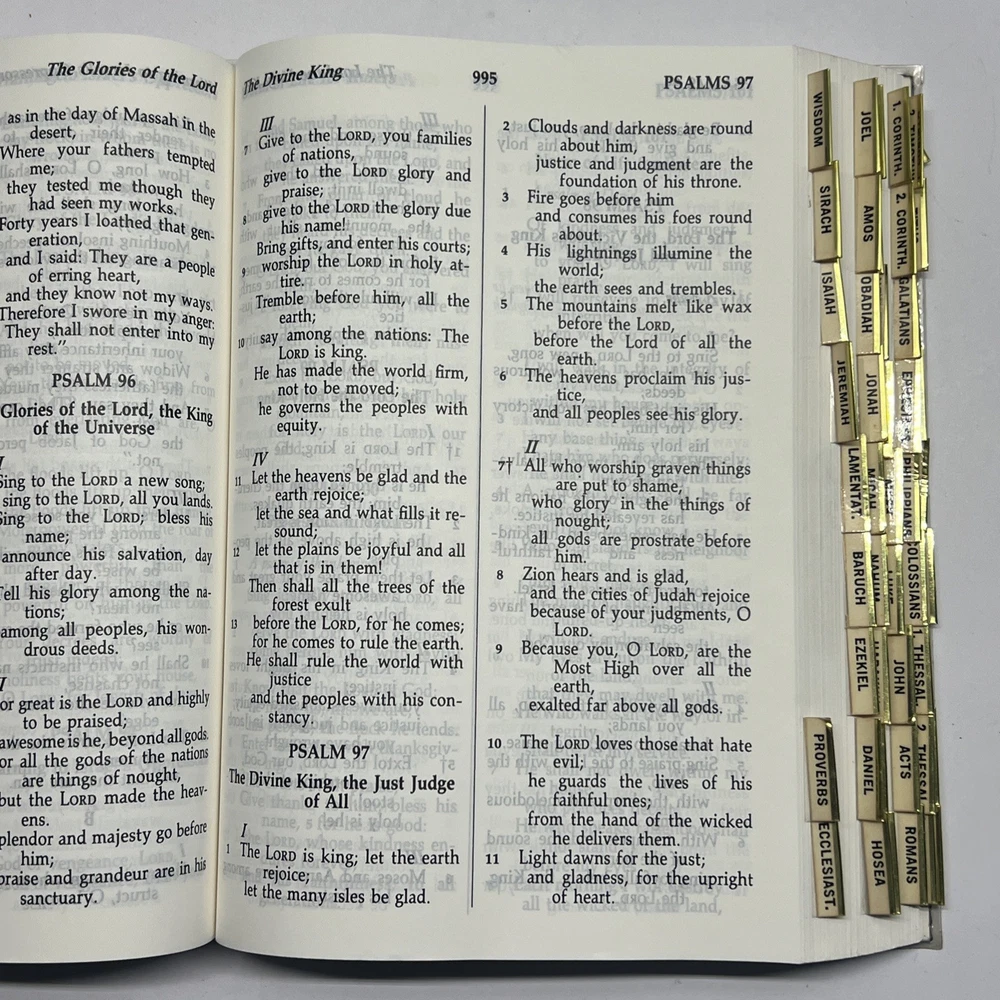 The Glories of the Lord
as in the day of Massah in the
desert,
Where your fathers tempted
me;
they tested me though they
had seen my works.
Forty years I loathed that gen-
eration,
and I said: They are a people
of erring heart,
and they know not my ways.
Therefore I swore in my anger:
They shall not enter into my
rest.”
PSALM 96
Glories of the Lord, the King
of the Universe
I
Sing to the LORD a new song;
sing to the LORD, all you lands.
Sing to the LORD; bless his
name;
announce his salvation, day
after day.
Tell his glory among the na-
tions;
among all peoples, his won-
drous deeds.
or great is the LORD and highly
to be praised;
awesome is he, beyond all gods.
or all the gods of the nations
are things of nought,
but the LORD made the heav-
ens.
plendor and majesty go before
him;
praise and grandeur are in his
sanctuary.
The Divine King 995 PSALMS 97
III
7 Give to the LORD, you families
of nations,
give to the LORD glory and
praise;
8 give to the LORD the glory due
his name!
Bring gifts, and enter his courts;
9 worship the LORD in holy at-
tire.
Tremble before him, all the
earth;
10 say among the nations: The
LORD is king.
He has made the world firm,
not to be moved;
he governs the peoples with
equity.
IV
11 Let the heavens be glad and the
earth rejoice;
let the sea and what fills it re-
sound;
12 let the plains be joyful and all
that is in them!
Then shall all the trees of the
forest exult
13 before the LORD, for he comes;
for he comes to rule the earth.
He shall rule the world with
justice
and the peoples with his con-
stancy.
PSALM 97
The Divine King, the Just Judge
of All
I
1 The LORD is king; let the earth
rejoice;
let the many isles be glad.
2 Clouds and darkness are round
about him,
justice and judgment are the
foundation of his throne.
3 Fire goes before him
and consumes his foes round
about.
4 His lightnings illumine the
world;
the earth sees and trembles.
5 The mountains melt like wax
before the LORD,
before the Lord of all the
earth.
6 The heavens proclaim his jus-
tice,
and all peoples see his glory.
II
7† All who worship graven things
are put to shame,
who glory in the things of
nought;
all gods are prostrate before
him.
8 Zion hears and is glad,
and the cities of Judah rejoice
because of your judgments, O
LORD.
9 Because you, O LORD, are the
Most High over all the
earth,
exalted far above all gods.
10 The LORD loves those that hate
evil;
he guards the lives of his
faithful ones;
from the hand of the wicked
he delivers them.
11 Light dawns for the just;
and gladness, for the upright
of heart.
WISDOM
SIRACH
ISAIAH
JEREMIAH
LAMENTAT.
BARUCH
EZEKIEL
PROVERBS
ECCLESIAST.
JOEL
AMOS
OBADIAH
JONAH
MICAH
NAHUM
DANIEL
HOSEA
1. CORINTH.
2. CORINTH.
GALATIANS
PHILIPPIANS
COLOSSIANS
LUKE
JOHN
ACTS
ROMANS
1. THESSAL.
2. THESSAL.